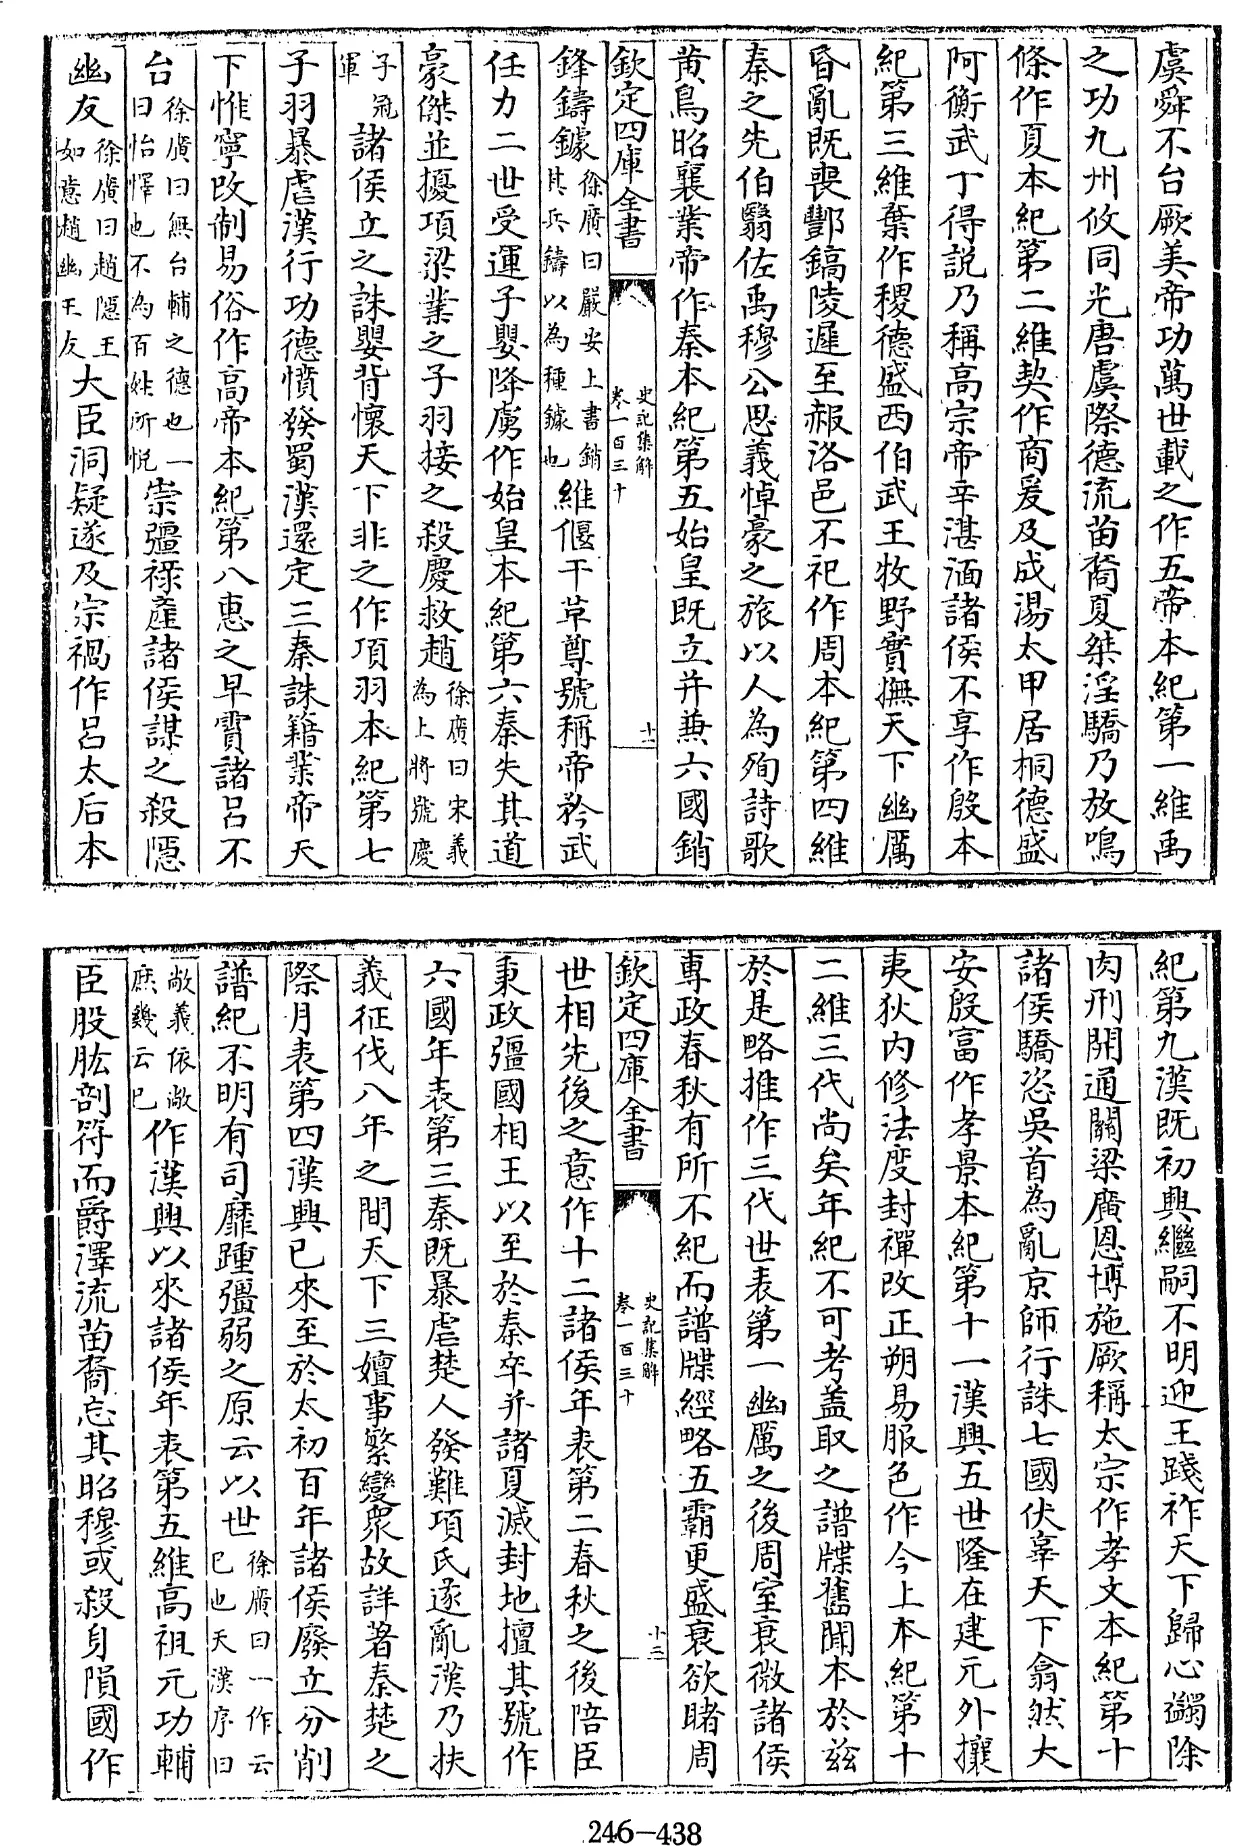 虞舜不台厥美帝功萬世載之作五帝本紀第一維禹
之功九州攸同光唐虞際德流苗裔夏桀淫驕乃放鳴
條作夏本紀第二維契作商爰及成湯太甲居桐德盛
阿衡武丁得説乃稱高宗帝辛湛湎諸侯不享作殷本
紀第三維葉作稷德盛西伯武王牧野實撫天下幽厲
昏亂既喪酆鎬陵遲至赧洛邑不祀作周本紀第四維
秦之先伯翳佐禹穆公思義悼豪之旅以人為殉詩歌
黄鳥昭襄業帝作秦本紀第五始皇既立并兼六國銷
欽定四庫全書
史記集解
卷一百三十
十二
鋒鑄鐻徐廣曰嚴安上書銷其兵鑄以為種鐻也維偃干革尊號稱帝矜武
任力二世受運子嬰降虜作始皇本紀第六秦失其道
豪傑並擾項梁業之子羽接之殺慶救趙徐廣曰宋義為上將號慶
子冠軍諸侯立之誅嬰背懷天下非之作項羽本紀第七
子羽暴虐漢行功德憤發蜀漢還定三秦誅籍業帝天
下惟寧改制易俗作高帝本紀第八惠之早霣諸呂不
台徐廣曰無台輔之德也一曰怡懌也不為百姓所悦崇彊祿產諸侯謀之殺隱
幽友徐廣曰趙隱王如意趙幽王友大臣洞疑遂及宗禍作呂太后本
紀第九漢既初興繼嗣不明迎王踐祚天下歸心蠲除
肉刑開通關梁廣恩博施厥稱太宗作孝文本紀第十
諸侯驕恣吳首為亂京師行誅七國伏辜天下翕然大
安殷富作孝景本紀第十一漢興五世隆在建元外攘
夷狄内修法度封禪改正朔易服色作今上本紀第十
二維三代尚矣年紀不可考蓋取之譜牒舊聞本於兹
於是略推作三代世表第一幽厲之後周室衰微諸侯
專政春秋有所不紀而譜牒經略五霸更盛衰欲睹周
欽定四庫全書
史記集解
卷一百三十
十三
世相先後之意作十二諸侯年表第二春秋之後陪臣
秉政彊國相王以至於秦卒并諸夏滅封地擅其號作
六國年表第三秦既暴虐楚人發難項氏遂亂漢乃扶
義征伐八年之間天下三嬗事繁變衆故詳著秦楚之
際月表第四漢興已來至於太初百年諸侯廢立分削
譜紀不明有司靡踵彊弱之原云以世徐廣曰一作云已也天漢序曰
敞義依敞庶幾云已作漢興以來諸侯年表第五維高祖元功輔
臣股肱剖符而爵澤流苗裔忘其昭穆或殺身隕國作
246-438